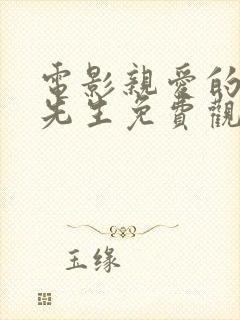 電影親愛的
先生免費觀
玉缘